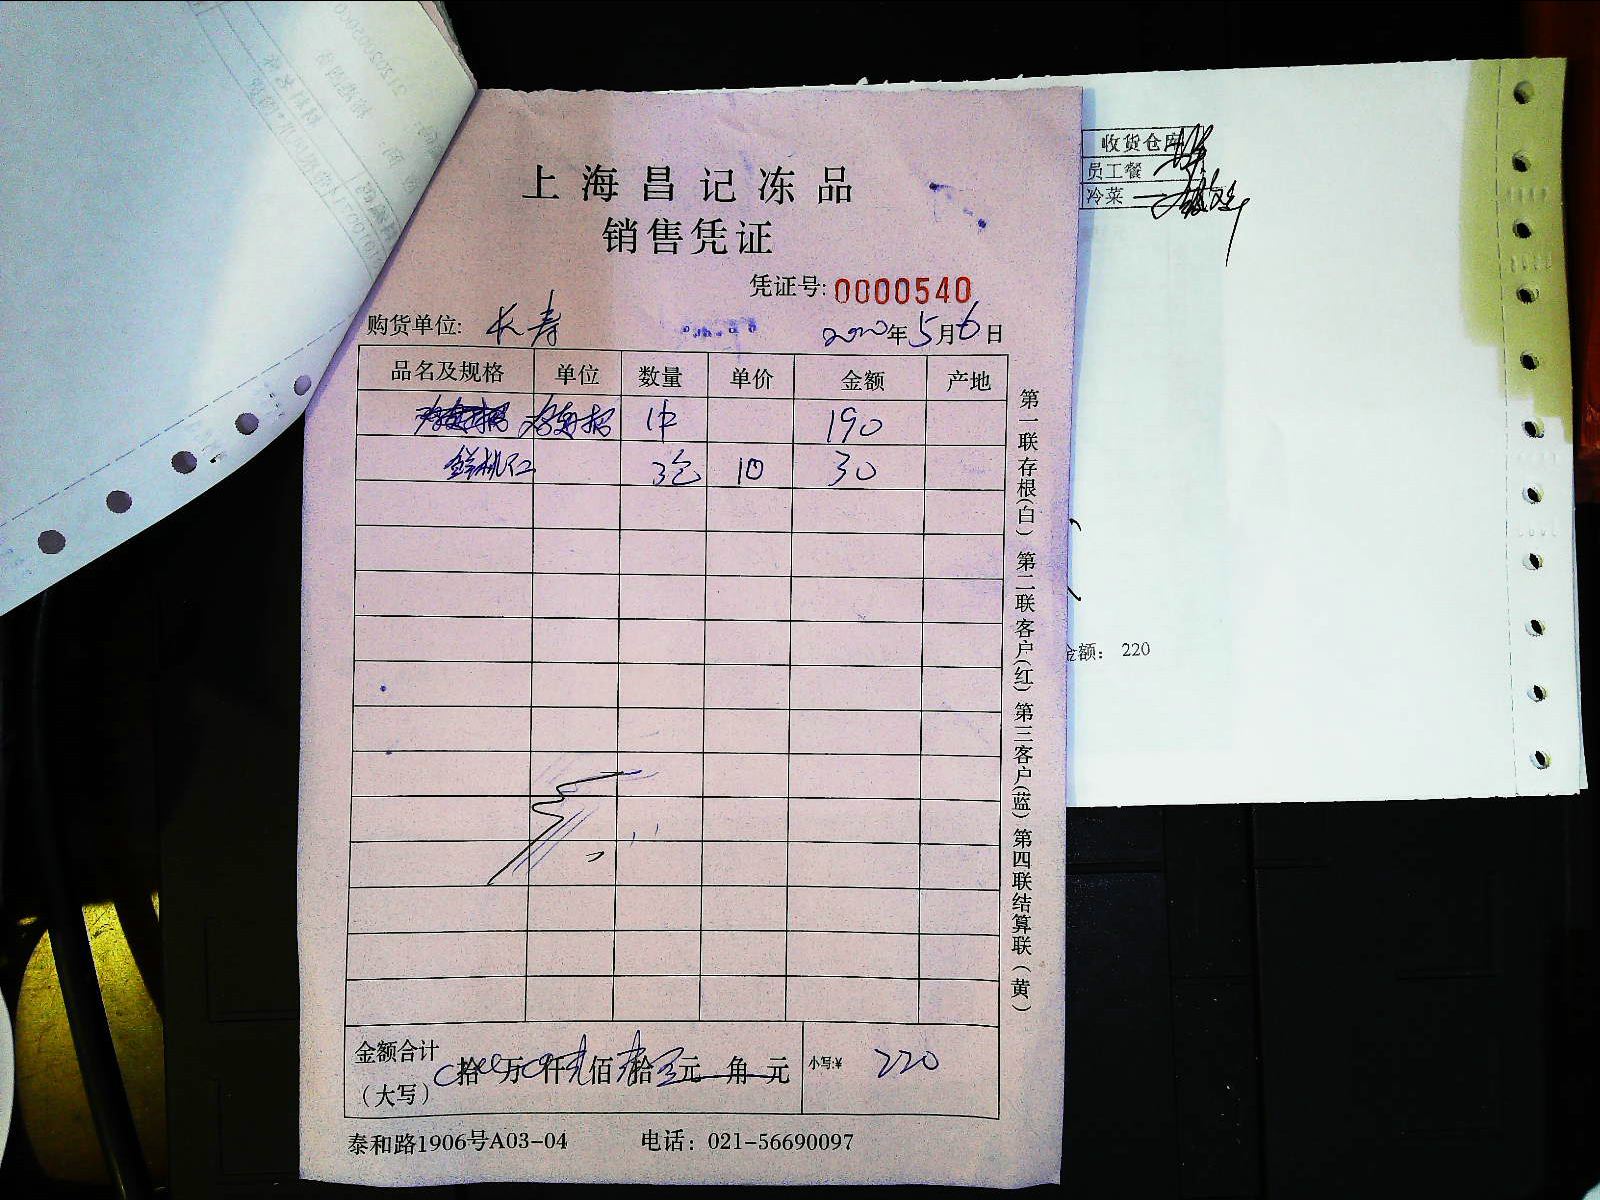 上海昌记冻品
销售凭证
凭证号: 0000540
购货单位: 长寿
2020年5月6日
品名及规格 单位 数量 单价 金额 产地
1件 190
鲜桃仁 3包 10 30
金额合计 拾 万 仟 佰 拾 元 角 元
(大写)
小写:¥ 220
泰和路1906号A03-04 电话: 021-56690097
第一联存根(白) 第二联客户(红) 第三客户(蓝) 第四联结算联(黄)
收货仓库
员工餐
冷菜
金额: 220